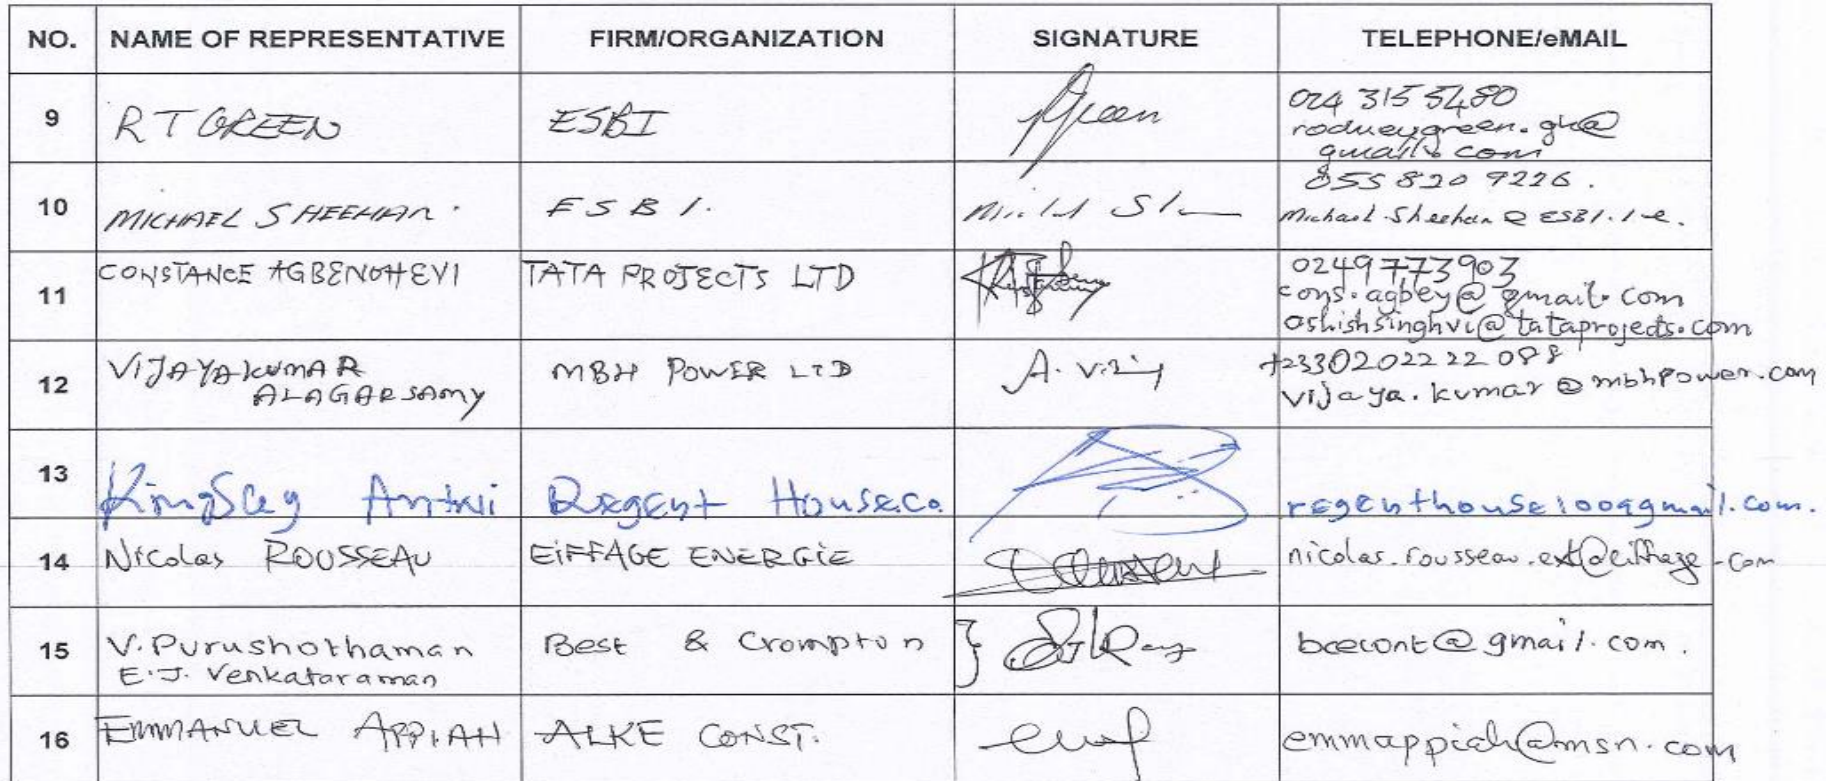 NO. NAME OF REPRESENTATIVE FIRM/ORGANIZATION SIGNATURE TELEPHONE/eMAIL
9 R T GREEN ESBI 024 315 5480
rodneygreen.gha@
gmail.com
10 MICHAEL SHEEHAN. ESBI. 055 820 9226.
Michael.Sheehan@ESBI.ie.
11 CONSTANCE AGBENOHEVI TATA PROJECTS LTD 0249773903
cons.agbey@gmail.com
ashishsinghvi@tataprojects.com
12 VIJAYAKUMAR MBH POWER LTD A. Vijay +233020222 22 088
ALAGARSAMY vijaya.kumar@mbhpower.com
13 Kingsley Antwi Regent House.Co. regenthouse100@gmail.com.
14 Nicolas ROUSSEAU EIFFAGE ENERGIE nicolas.rousseau.ext@eiffage.com
15 V. Purushothaman Best & Crompton bcecont@gmail.com.
E.J. Venkataraman
16 EMMANUEL APPIAH ALKE CONST. emmappiah@msn.com